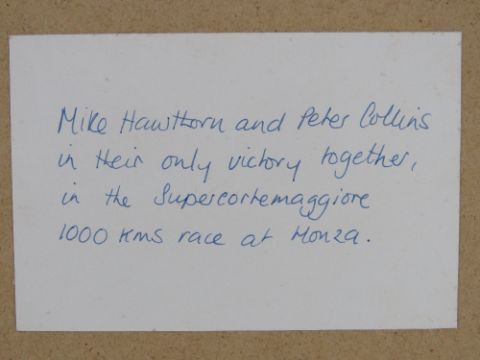 Mike Hawthorn and Peter Collins
in their only victory together,
in the Supercortemaggiore
1000 Kms race at Monza.